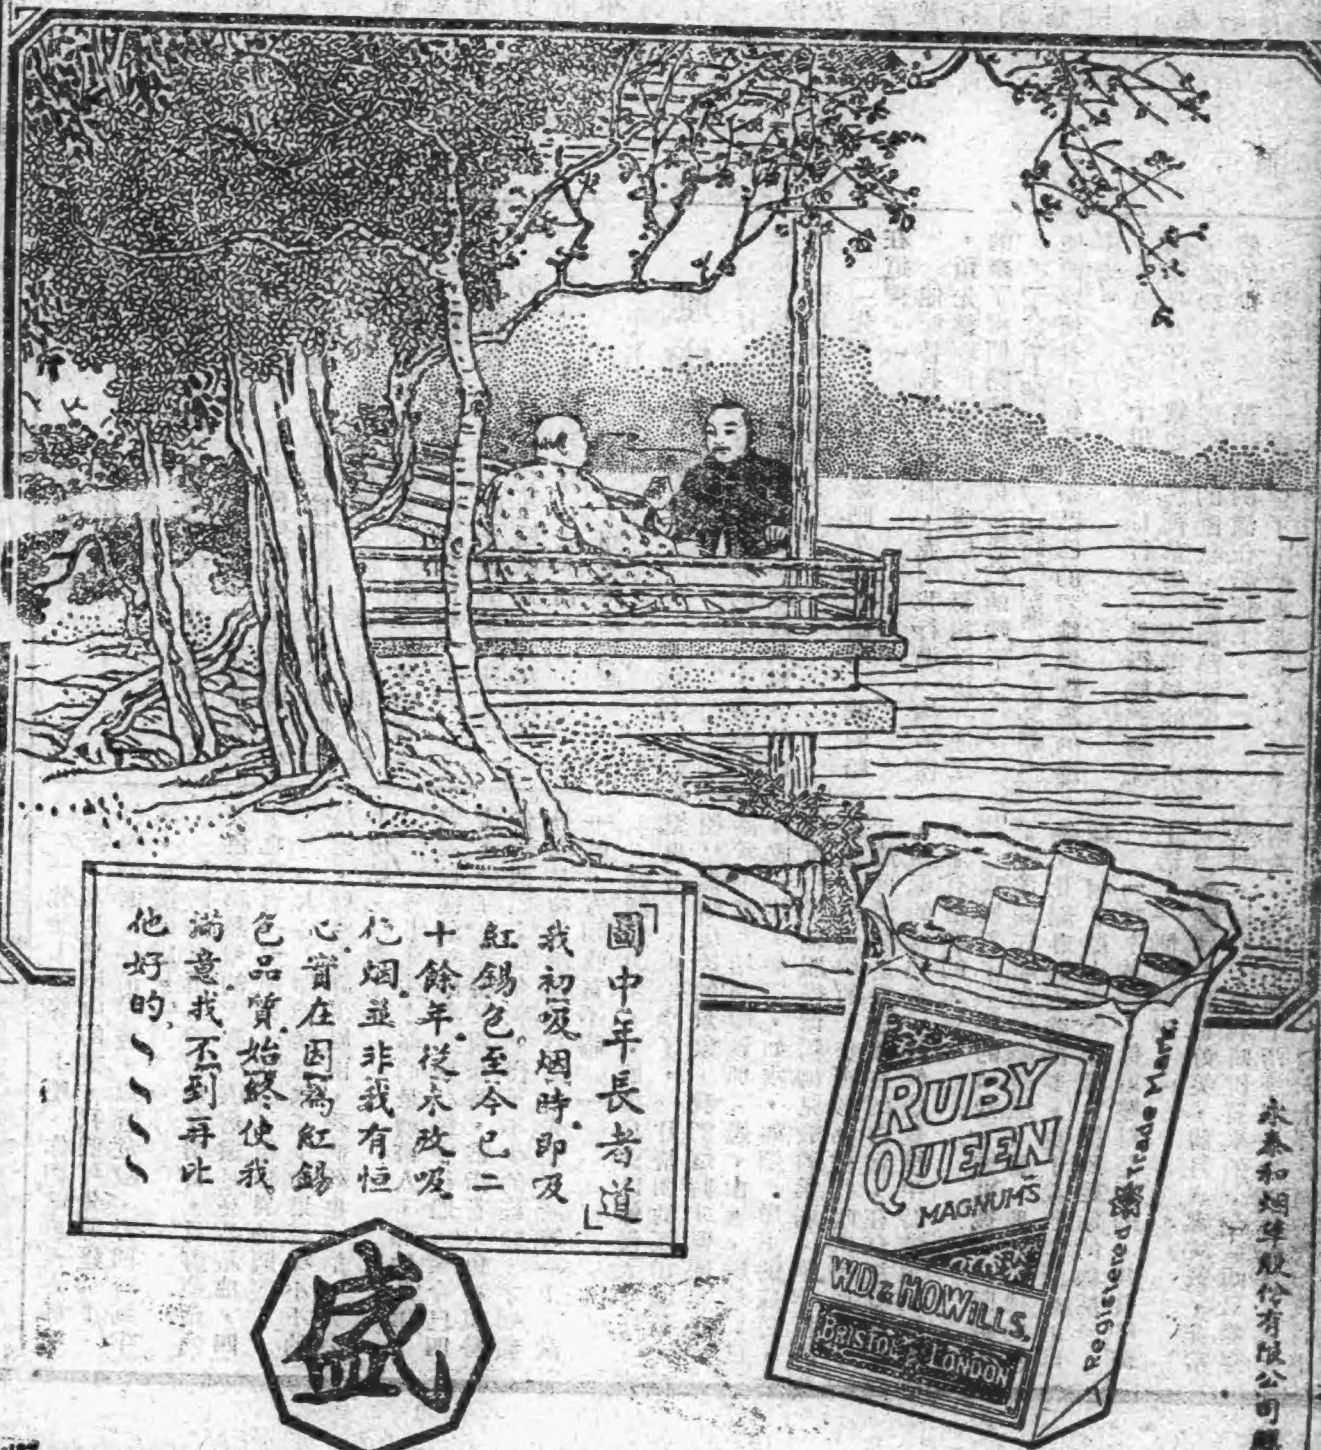 「圖中年長者道」
我初吸烟時.即吸
紅錫包.至今已二
十餘年.從未改吸
他烟.並非我有恒
心.實在因為紅錫
包品質.始終使我
滿意.我不到再比
他好的、、、、
盛
RUBY
QUEEN
MAGNUMS
W.D. & H.O. WILLS,
BRISTOL & LONDON
Registered Trade Mark.
永泰和烟草股份有限公司